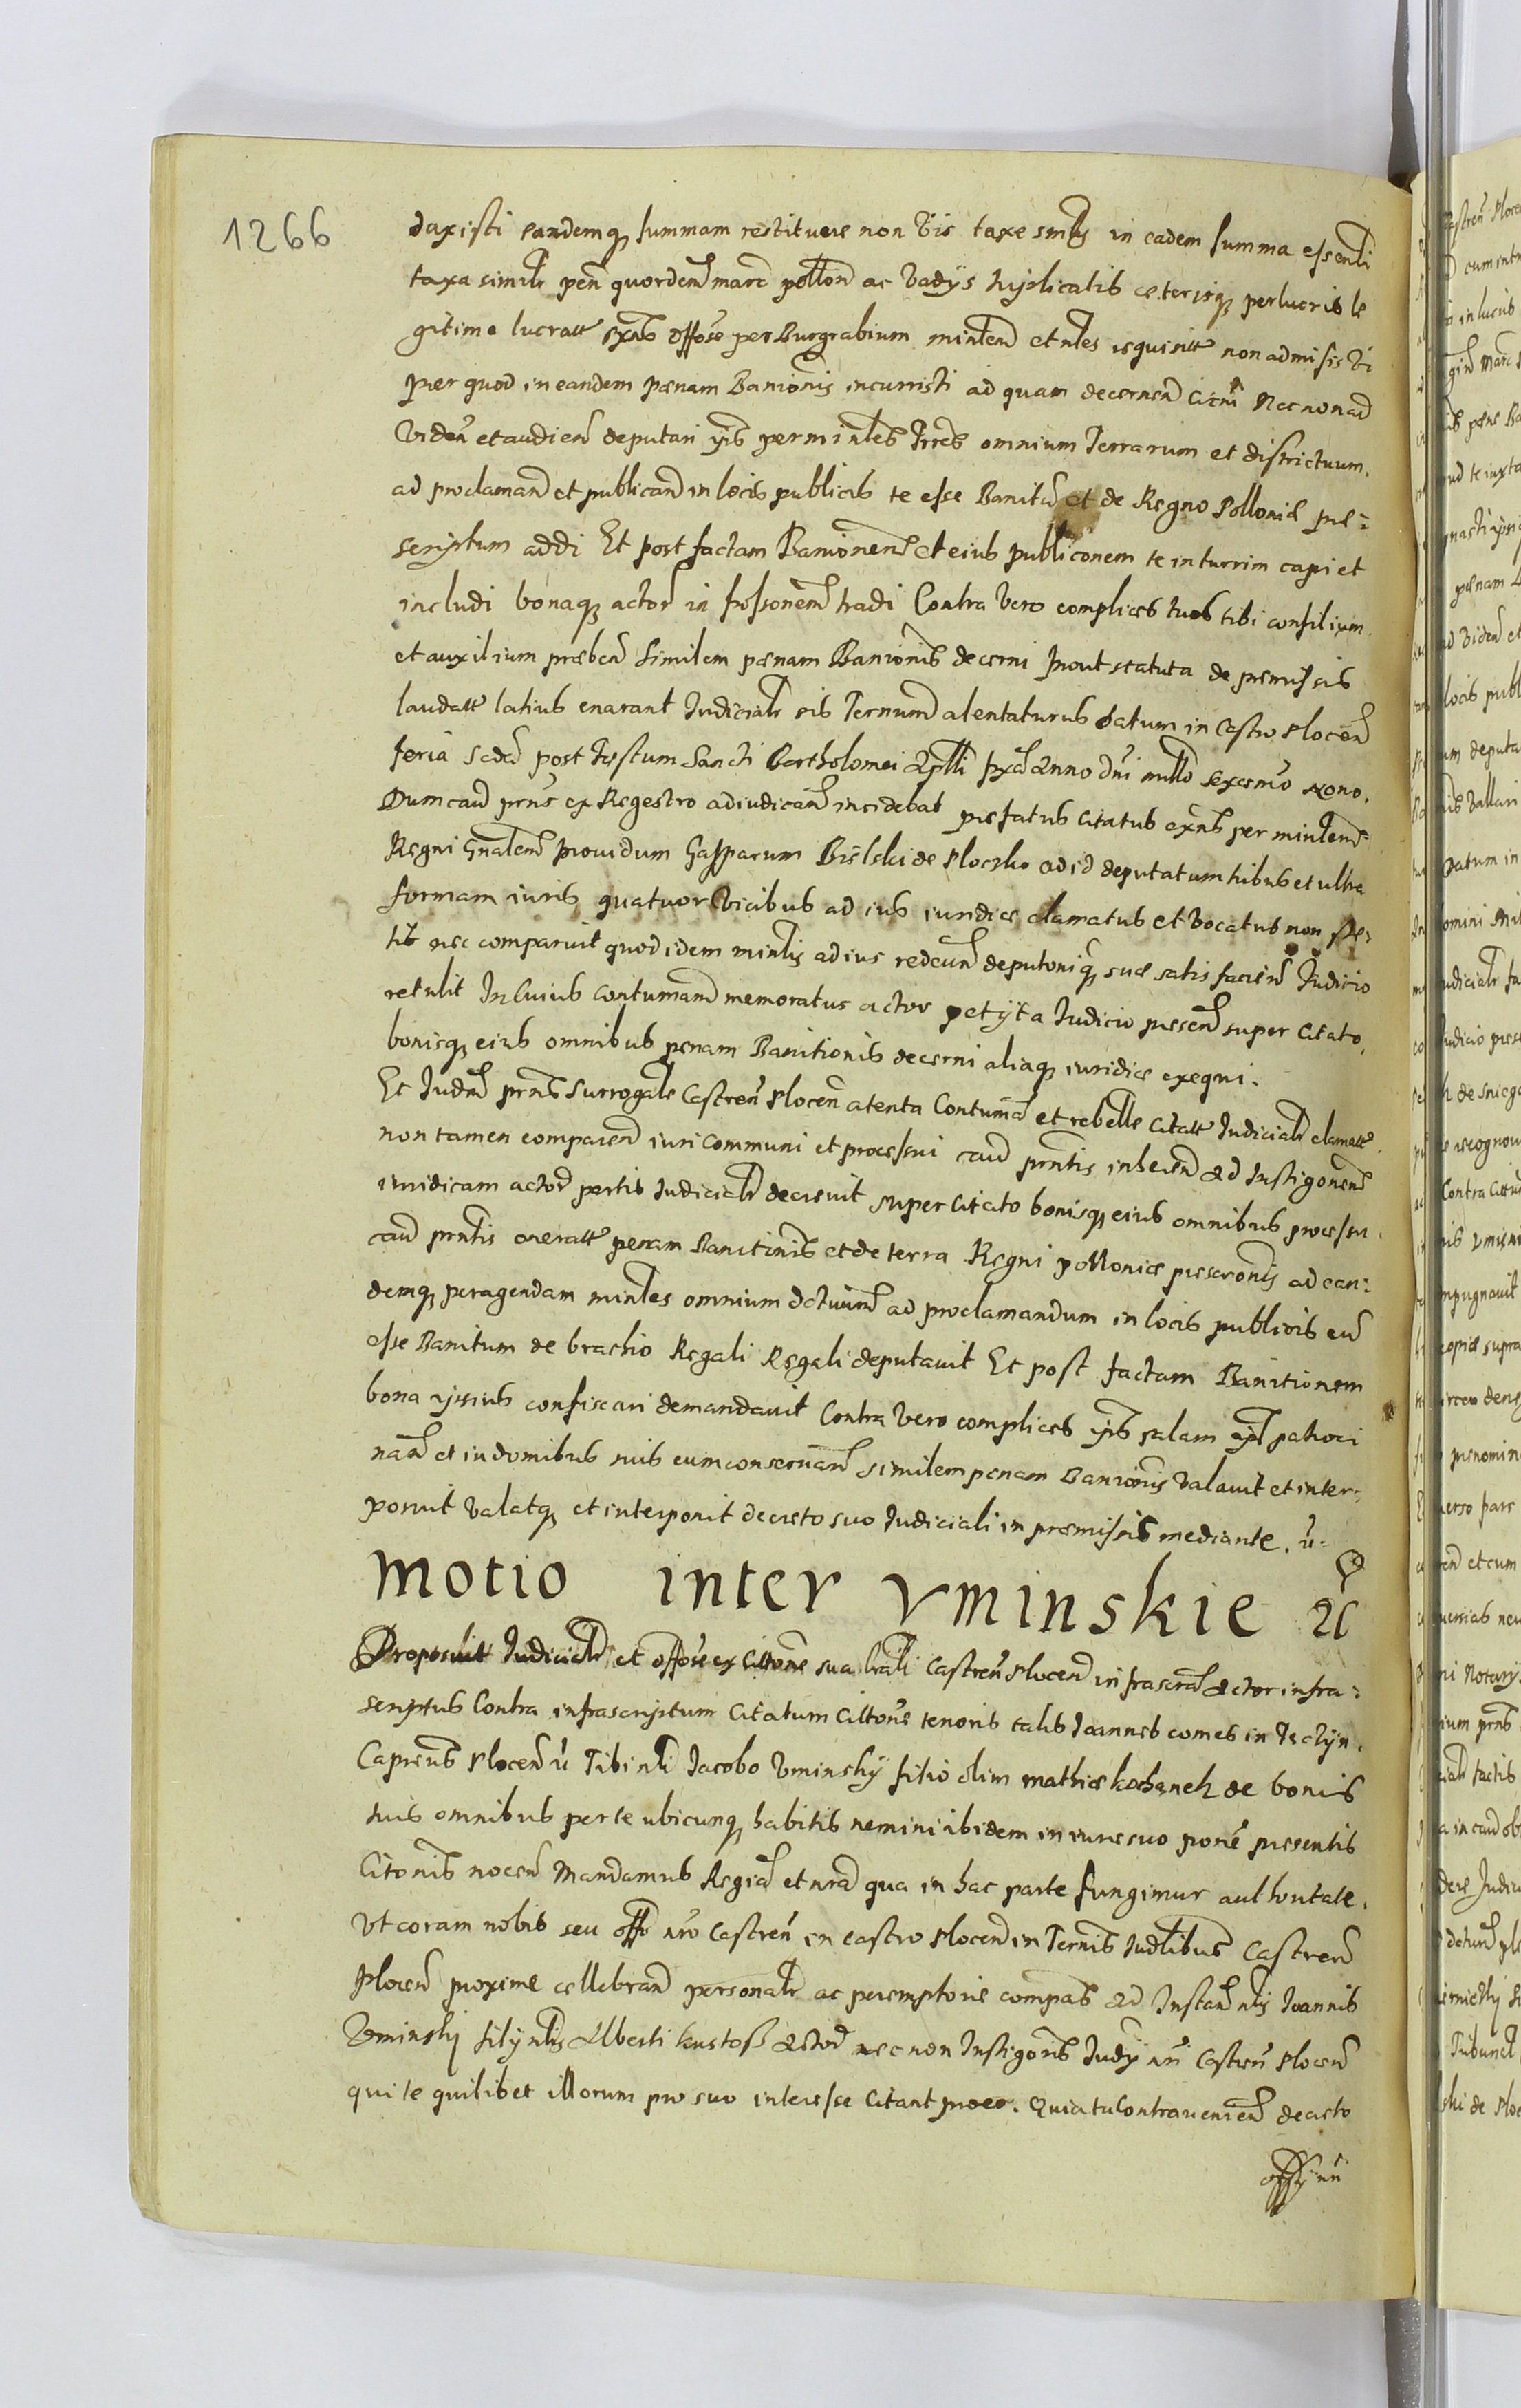 1266
daxisti eandemq summam restituere non vis taxe smlis in eadem summa essenli
taxa similr pen quorden marc pollon ac vadys triplicatis ceterisq perlucris le
gitime lucratt exns offose per Burgrabium minlem et nles requisitt non admisisti
per quod in eandem penam Banionis incurristi ad quam decernen citris Necnon ad
viden et audien deputari yis per minles Trres omnium Terrarum et districtuum.
ad proclamand et publicand in locis publicis te esse Banitu et de Regno Pollonie pre-
scriptum addi Et post factam Banionem et eius publiconem te in turrim capi et
includi bonaq actor in possonem tradi Contra vero complices tuos tibi consilium
et auxilium præben similem pænam Banionis decerni Prout statuta de premissis
laudatt latius enarant Judicialr sis Ternum atentaturus Datum in Castro Plocen
feria Scda post Festum Sancti Bartholomei Aplli pxa Anno dni millo sexcemo nono.
Dum caua prns ex Regestro adiudicam incidebat prefatus citatus exns per minlem
Regni Gnalem providum Gasparum Bielski de Ploczko ad id deputatum tribus et ultra
formam iuris quatuor vicibus ad ius iuridice clamatus et vocatus non ste-
tit nec comparuit quod idem minlis ad ius redeun deputoniq suæ satisfacien Judicio
retulit In cuius contumam memoratus actor petyt a Judicio presen super citato,
bonisq eius omnibus penam Banitionis decerni aliaq iuridice exequi.
Et Judm prns Surrogale Castren Plocen atenta Contuma et rebelle citatt Judicialr clamatt
non tamen comparen iuri communi et processui caua prntis inheren Ad Instigonem
iuridicam actor partis Judicialr decrevit super citato bonisq eius omnibus processu
caua prntis oneratt penam Banitinis et de terra Regni Pollonice prescronis ad ean-
demq peragendam minles omnium dctuum ad proclamandum in locis publicis eu
esse Banitum de brachio Regali Regali deputavit Et post factam Banitionem
bona ipsius confiscari demandavit Contra vero complices yis palam patroci
nan et in domibus suis eum conservan similem penam Banionis valavit et inter-
posuit valatq et interponit decreto suo Judiciali in præmissis mediante.
motio inter vminskie
Proposuit Judicialr et offose ex cittone sua lrali Castren Plocen infrascra Actor infra-
scriptus Contra infrascriptum Citatum Cittonis tenoris talis Joannes comes in Tęczyn.
Capneus Plocen Tibi nli Jacobo Vminsky filio olim mathiæ kochanek de bonis
tuis omnibus per te ubicunq habitis nemini ibidem in iure suo pone presentis
Citonis nocen Mandamus Regia et nra qua in hac parte fungimur authoritate.
Vt coram nobis seu offo nro Castren in castro Plocen in Ternis Judlibus Castren
Plocen proxime cellebran personalr ac peremptorie compas Ad Instan nlis Joannis
Vminsky filij nlis Alberti kustoß Actor nec non Instigoris Judy nri Castren Plocen
qui te quilibet illorum pro suo interesse citant proeo. Quia tu Contravenien de acto
offy nri